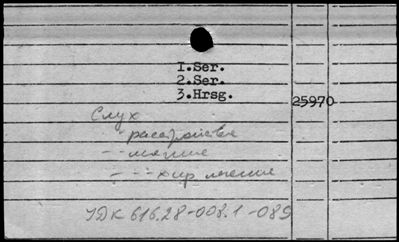 1.Ser.
2.Ser.
3.Hrsg.
25970
Слух
расстройства
- -
- - - хир лечение
УДК 616.28-008.1-089